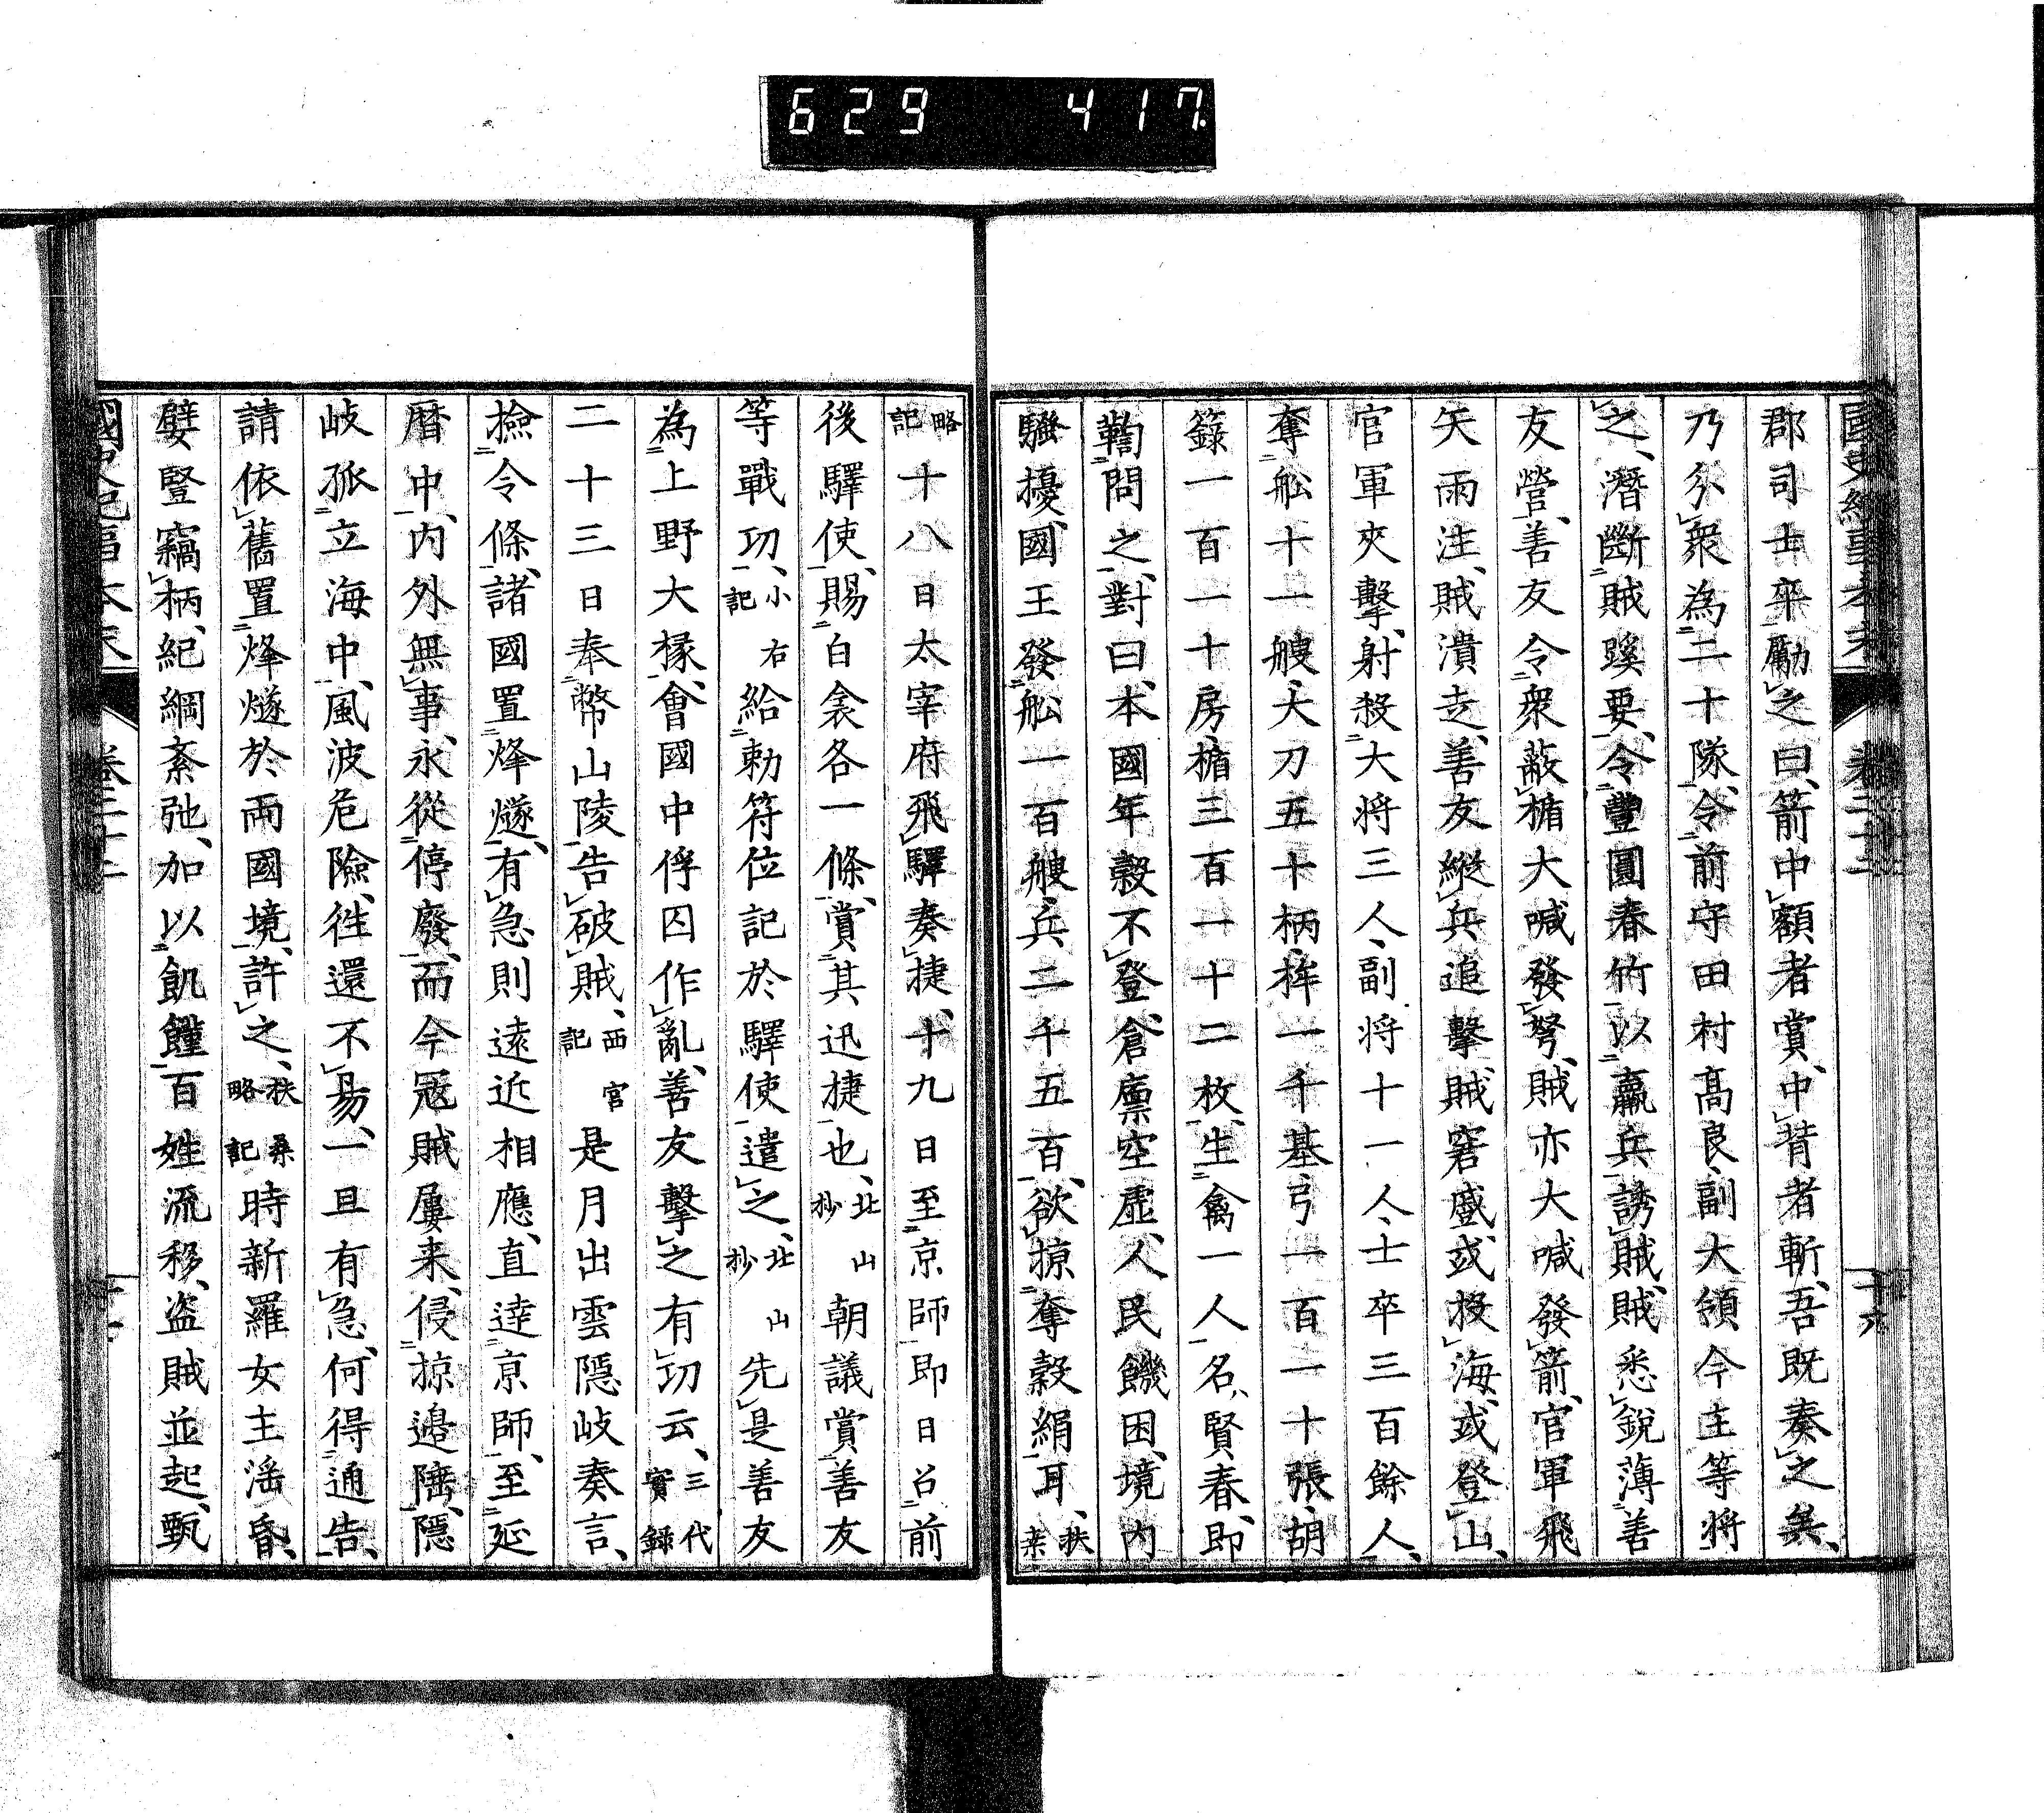 629 417.
國史紀事本末 卷二十二 十六
郡司士卒勵之曰、箭中額者賞、中背者斬、吾既奏之矣、
乃分衆為二十隊、令前守田村高良、副大領今主等將
之、潛斷賊蹊要、令豐圓春竹以羸兵誘賊、賊悉銳薄善
友營、善友令衆蔽楯大喊發弩、賊亦大喊發箭、官軍飛
矢雨注、賊潰走、善友縱兵追擊、賊窘蹙、或投海、或登山、
官軍夾擊、射殺大将三人、副将十一人、士卒三百餘人、
奪舩十一艘、大刀五十柄、桙一千基、弓一百一十張、胡
籙一百一十房、楯三百一十二枚、生禽一人、名賢春、即
鞫問之、對曰、本國年穀不登、倉廩空虛、人民饑困、境内
騷擾、國王發舩一百艘、兵二千五百、欲掠奪穀絹耳、扶桑
略記十八日太宰府飛驛奏捷、十九日至京師、即日召前
後驛使、賜白衾各一條、賞其迅捷也、北山抄朝議賞善友
等戰功、小右記給勅符位記於驛使遣之、北山抄先是善友
為上野大椽、會國中俘囚作亂、善友擊之有功云、三代實錄
二十三日奉幣山陵告破賊、西官記是月出雲隱岐奏言、
撿令條、諸國置烽燧、有急則遠近相應、直達京師、至延
曆中、内外無事、永從停廢、而今冦賊屢来、侵掠邉陲、隱
岐孤立海中、風波危險、徃還不易、一旦有急、何得通告、
請依舊置烽燧於兩國境、許之、扶桑略記時新羅女主淫昏、
嬖豎竊柄、紀綱紊弛、加以飢饉百姓流移、盗賊並起、甄
國史紀事本末 卷二十二